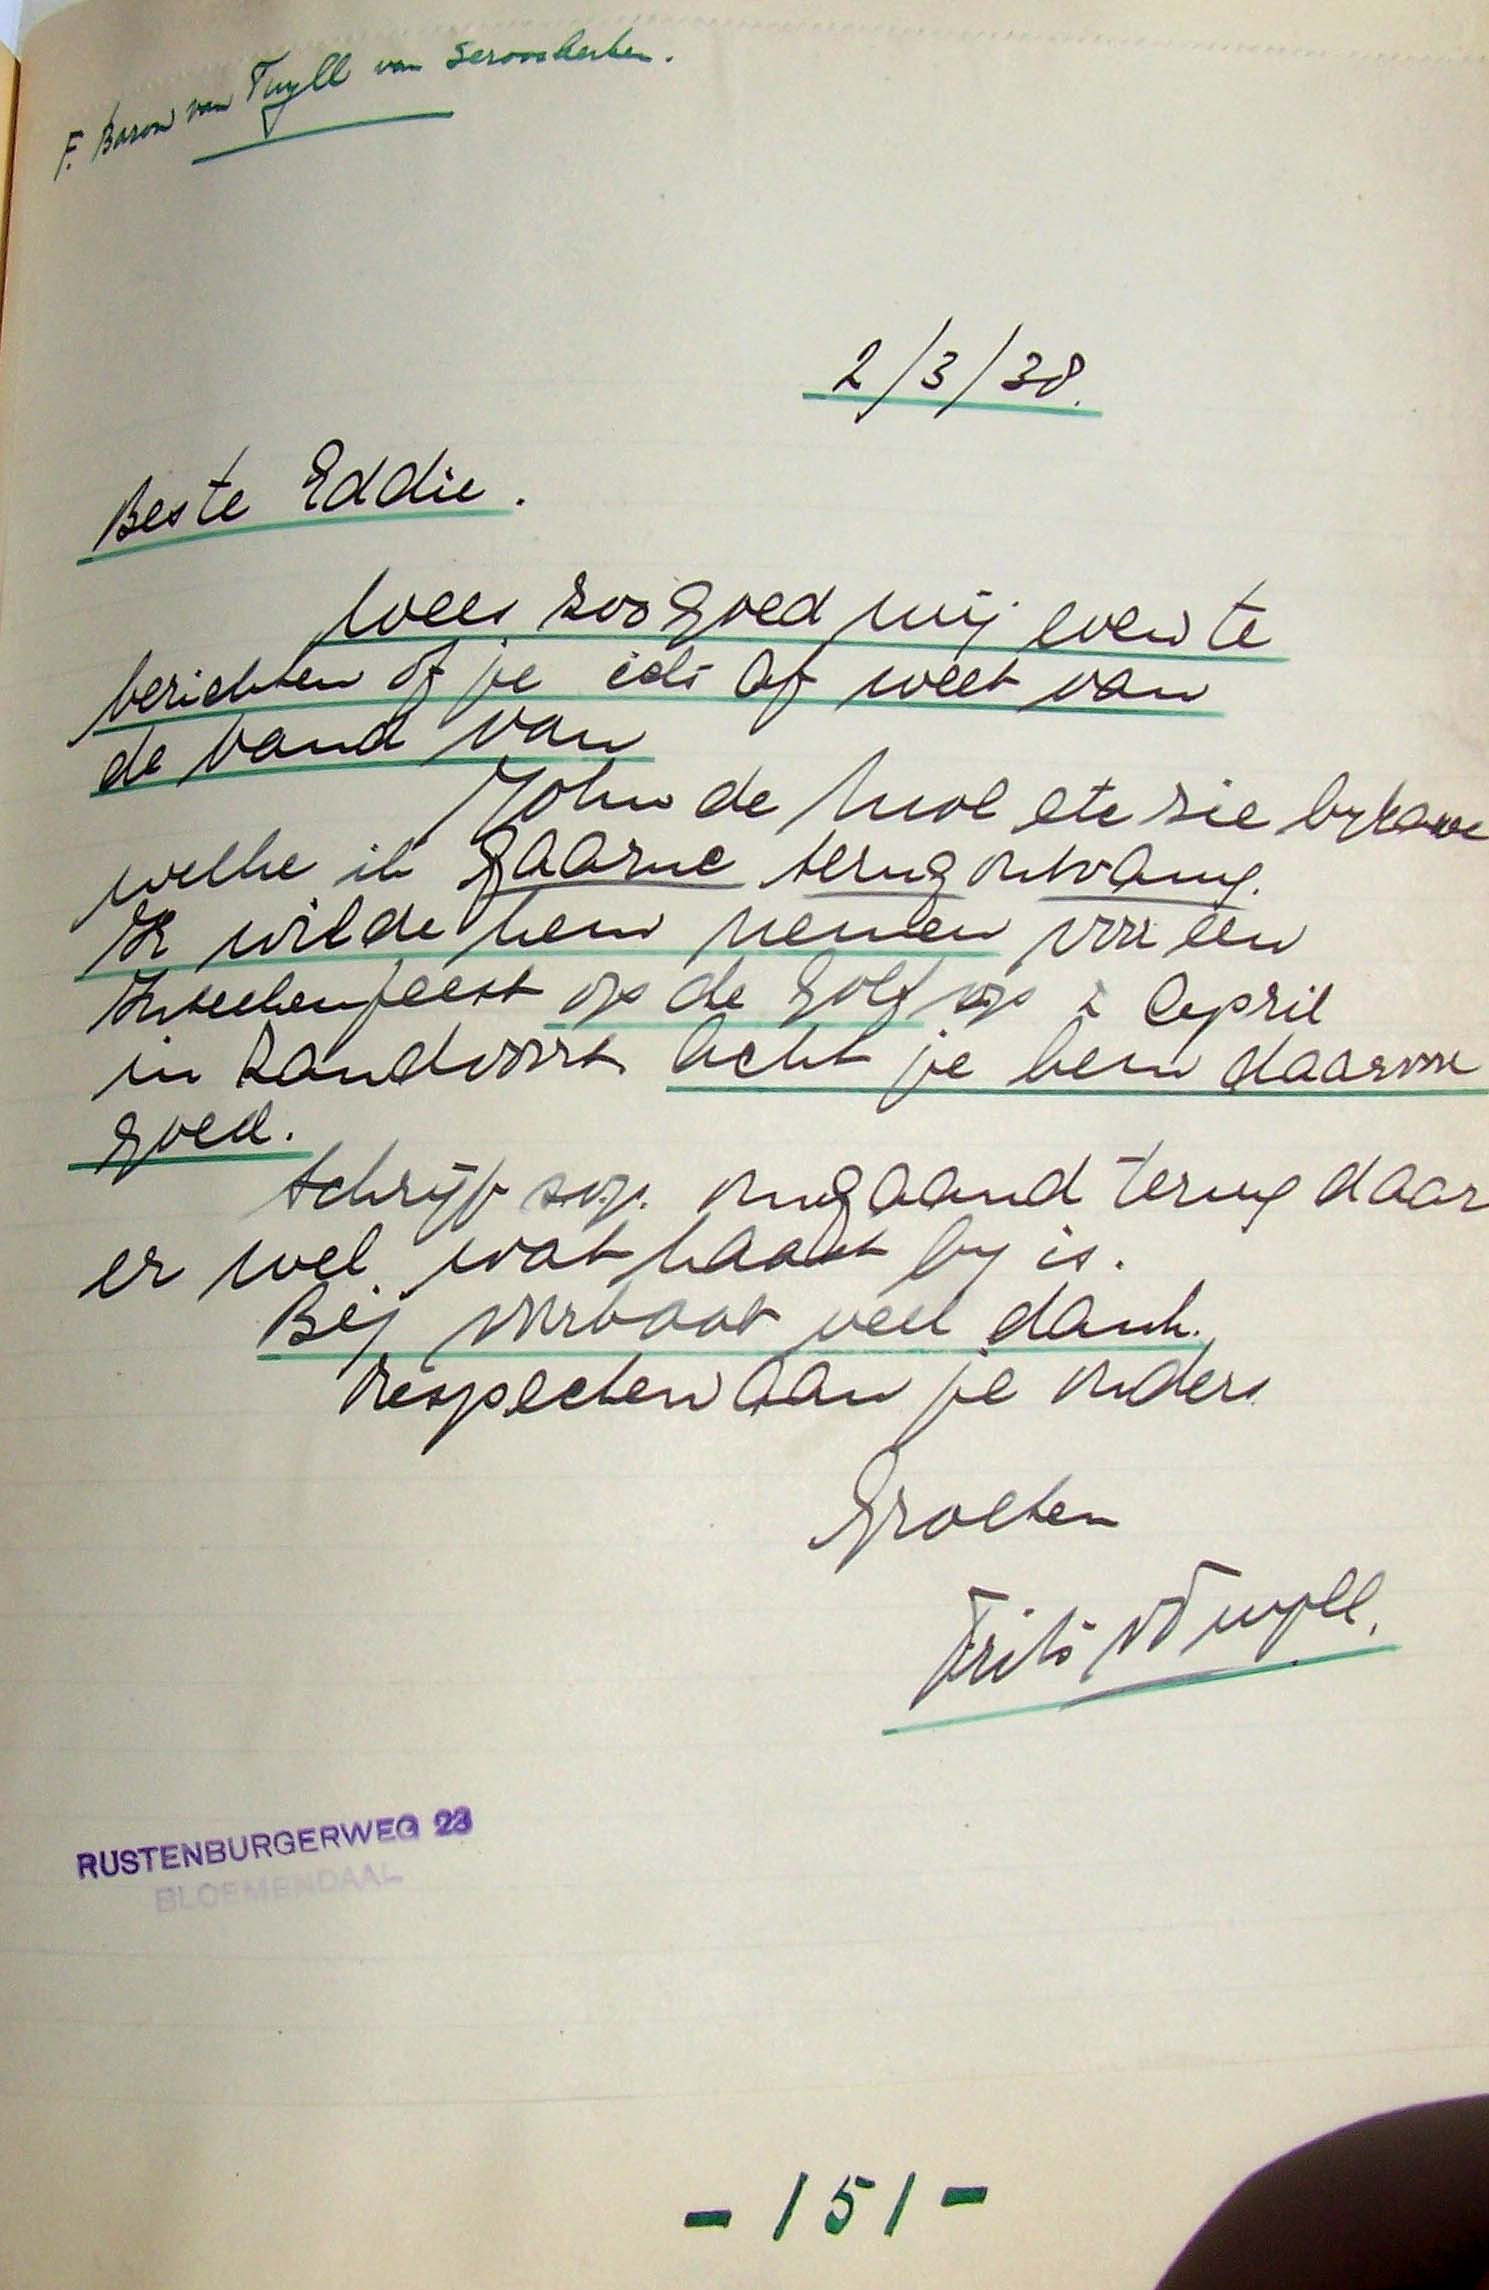 F. Baron van Tuyll van Serooskerken.
2/3/38.
Beste Eddie.
Wees zoo goed mij even te
berichten of je iets af weet van
de band van
John de Mol etc zie bylage
welke ik gaarne terug ontvang.
Ik wilde hem nemen voor een
Insectenfeest op de Golf op 2 April
in Zandvoort. Acht je hem daarvoor
goed.
Schrijf s.v.p. omgaand terug daar
er wel wat haast by is.
Bij voorbaat veel dank.
Respecten aan je ouders
Groeten
Frits v Tuyll.
RUSTENBURGERWEG 23
BLOEMENDAAL
- 151 -